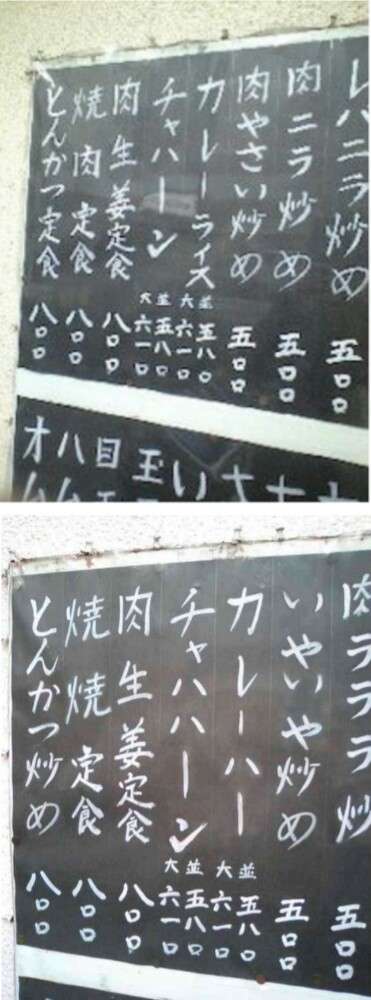 レハニラ炒め 五〇〇
肉ニラ炒め 五〇〇
肉やさい炒め 五〇〇
カレーライス 並 五八〇 大 六一〇
チャハーン 並 五八〇 大 六一〇
肉生姜定食 八〇〇
焼肉定食 八〇〇
とんかつ定食 八〇〇
い
玉
目
ハム
オム
肉ラララ炒 五〇〇
いやいや炒め 五〇〇
カレーハー 並 五八〇 大 六一〇
チャハハーン 並 五八〇 大 六一〇
肉生姜定食 八〇〇
焼焼定食 八〇〇
とんかつ炒め 八〇〇